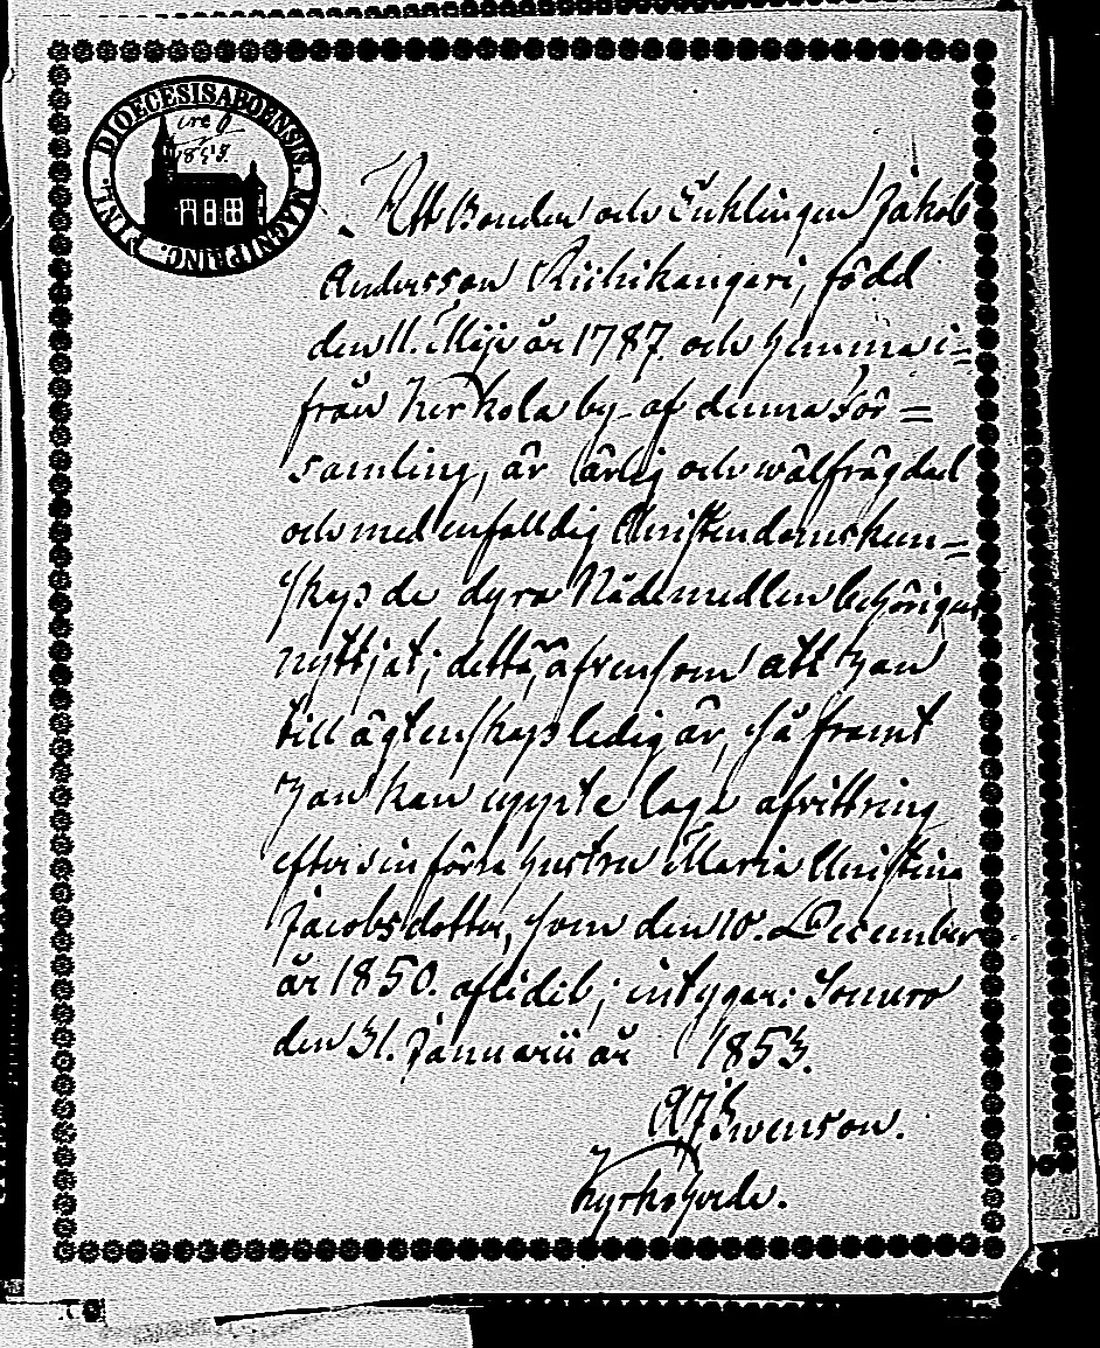 DIOECESIS ABOENSIS. MAGNI PRINC. FINL.
Att Bonden och Enklingen Jakob
Andersson Riihikangari, född
den 11. Maji år 1787. och hemma i=
från Kerkola by af denna För=
samling, är ärlig och wälfrägdad
och med enfalldig Christendomskun=
skap de dyra Nådemedlen behörigen
nyttjat; detta, äfvensom att han
till ägtenskap ledig är, så framt
han kan uppte laga afvittring
efter sin förra hustru Maria Christina
Jacobsdotter, som den 10. December
år 1850. aflidit; intygar: Somero
den 31. Januarii år 1853.
Swenson.
Kyrkoherde.